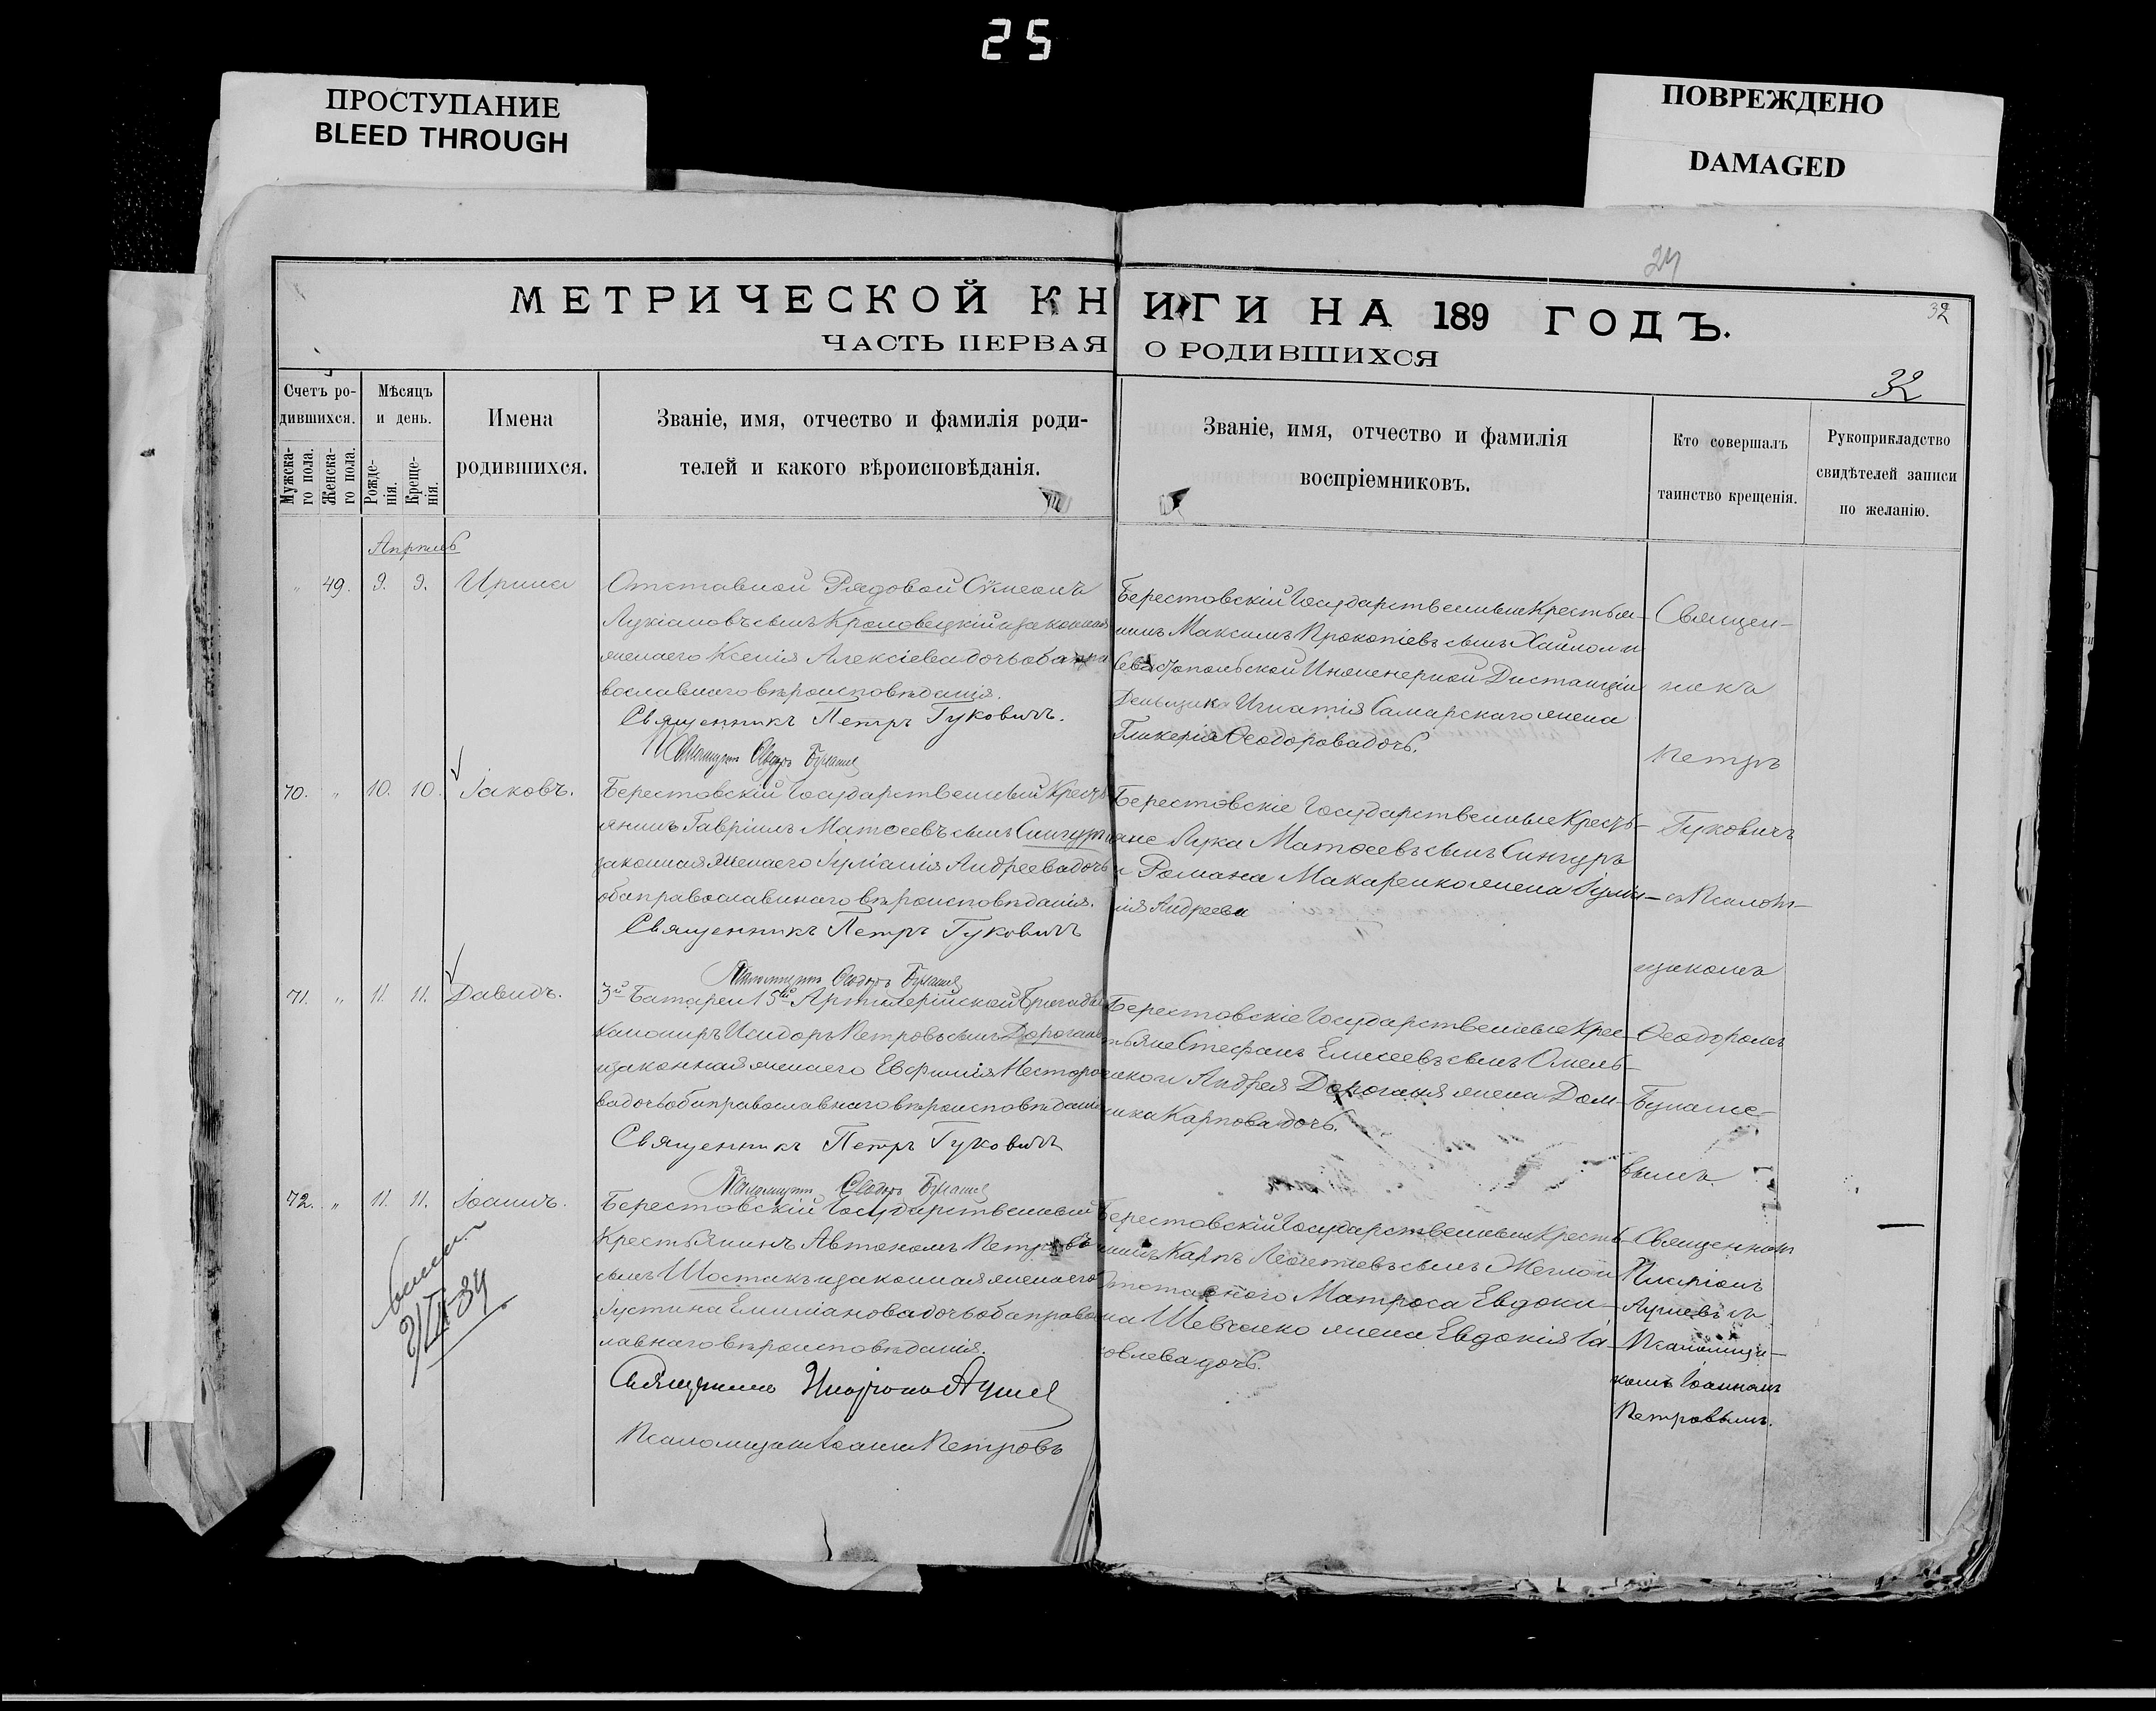 25
ПРОСТУПАНИЕ
BLEED THROUGH
ПОВРЕЖДЕНО
DAMAGED
МЕТРИЧЕСКОЙ КНИГИ НА 189 ГОДЪ.
32
ЧАСТЬ ПЕРВАЯ О РОДИВШИХСЯ
32
Счетъ ро-
дившихся.
Мужска-
го пола.
Женска-
го пола.
Мѣсяцъ
и день.
Рожде-
нія.
Креще-
нія.
Имена
родившихся.
Званіе, имя, отчество и фамилія роди-
телей и какого вѣроисповѣданія.
Званіе, имя, отчество и фамилія
воспріемниковъ.
Кто совершалъ
таинство крещенія.
Рукоприкладство
свидѣтелей записи
по желанію.
Апрель
" 49. 9. 9. Ирина
Отставной Рядовой Сѵмеонъ
Лукіановъ сынъ Кроловецкій и законная
жена его Ксенія Алексіева дочь оба пра
вославнаго вѣроисповѣданія.
Священникъ Петръ Гуковичъ.
Берестовскій Государственные Крестья-
нинъ Максимъ Прокопіевъ сынъ
Севастопольской Инженерной Дистанціи
Деньщика Игнатія Самарскаго жена
Гликерія Ѳеодорова дочь.
Священ-
никъ
Петръ
Гуковичъ
съ Псалом-
щикомъ
Ѳеодоромъ
70. " 10. 10. Іаковъ.
Берестовскій Государственный Крестъ
янинъ Гавріилъ Матѳеевъ сынъ Сингуръ
законная жена его Іуліанія Андреева дочь
оба православнаго вѣроисповѣданія.
Священникъ Петръ Гуковичъ
Берестовскіе Государственные Кресть-
яне Лука Матѳеевъ сынъ Сингуръ
и Романа Макаренко жена Іуліа-
нія Андреева
71. " 11. 11. Давидъ.
3й Батареи 15й Артилерійской Бригады
Канониръ Исидоръ Петровъ сынъ Дорогань
и законная жена его Евфимія Несторо
ва дочь оба православнаго вѣроисповѣданія
Священникъ Петръ Гуковичъ
Берестовскіе Государственные Крес-
тьяне Стефанъ Елисеевъ сынъ Омель-
Андрея Дороганя жена Дом-
ника Карпова дочь.
72. " 11. 11. Іоаннъ.
Берестовскій Государственный
Крестьянинъ Автономъ Петровъ
сынъ Шостакъ и законная жена его
Іустина Емиліанова дочь оба правос
лавнаго вѣроисповѣданія.
Псаломщикъ Іоаннъ Петровъ
Берестовскій Государственные Кресть-
нинъ Карпъ Леонтіевъ сынъ
Отставного Матроса Евдоки-
ма Шевченко жена Евдокія Іа-
ковлева дочь.
Священник
Псаломщи-
комъ Іоанномъ
Петровымъ.